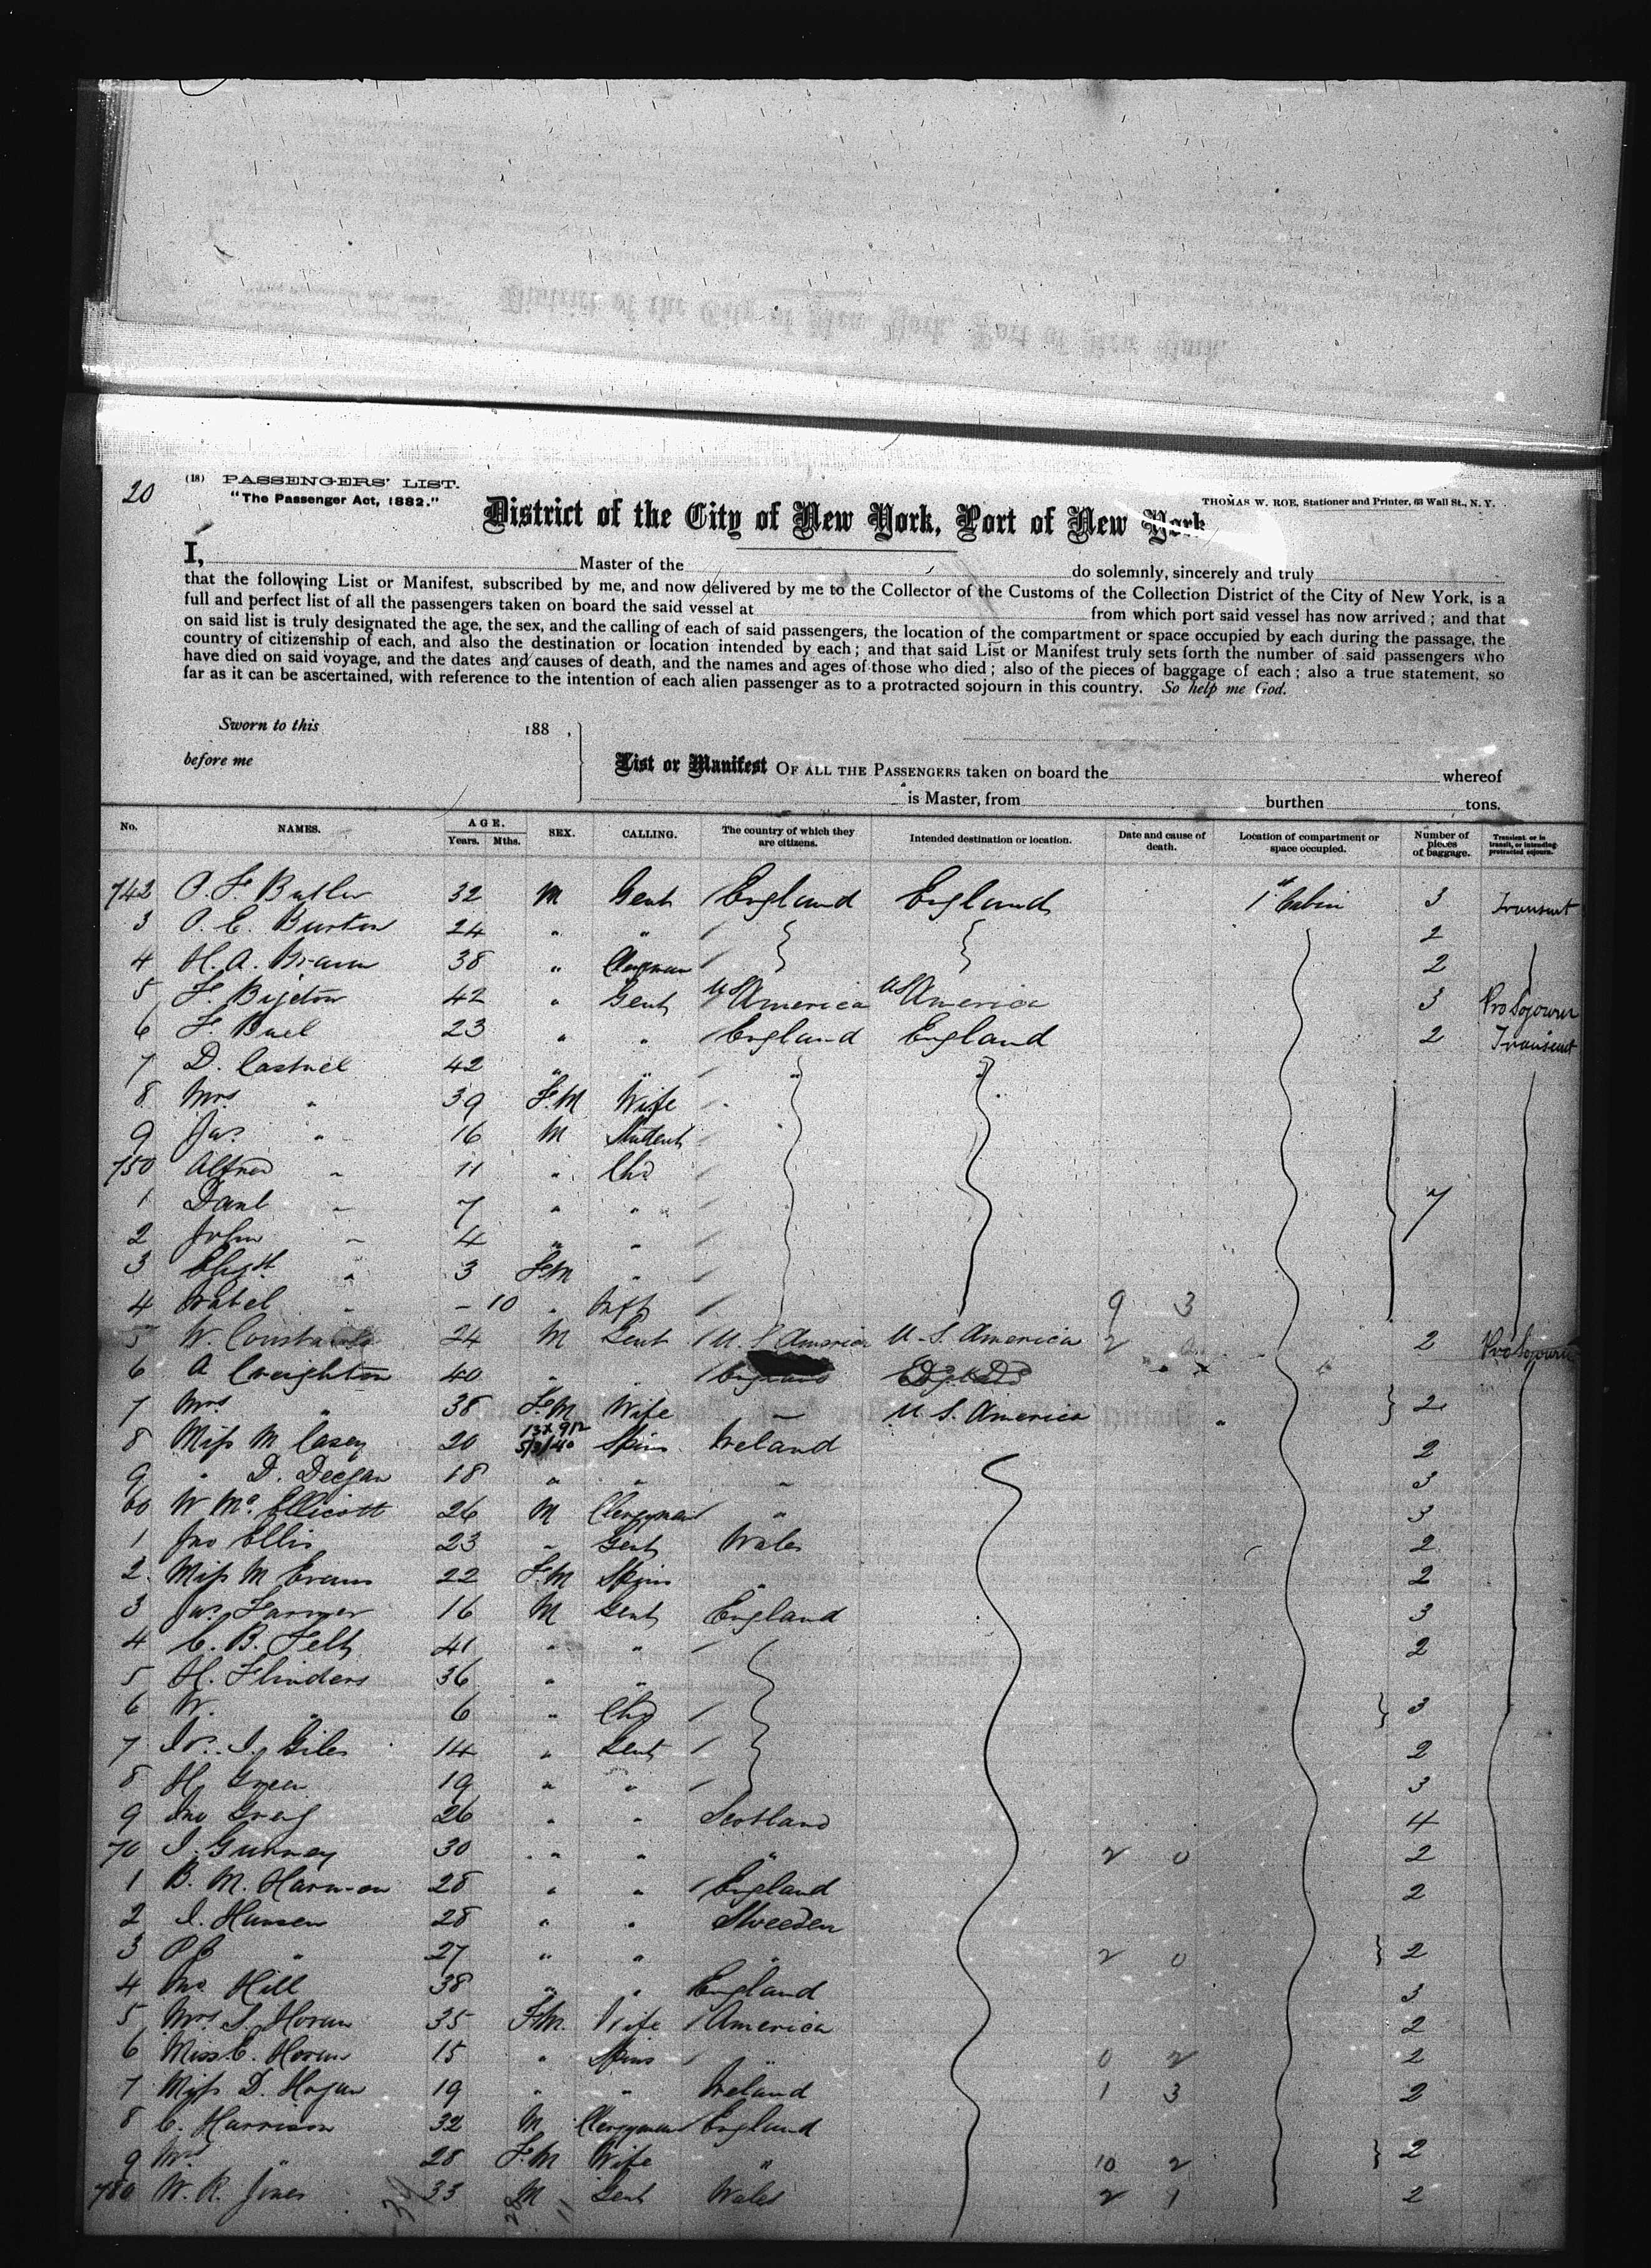 20
(18) PASSENGERS' LIST.
"The Passenger Act, 1882."
THOMAS W. ROE, Stationer and Printer, 63 Wall St., N. Y.
District of the City of New York, Port of New York
I, Master of the do solemnly, sincerely and truly
that the following List or Manifest, subscribed by me, and now delivered by me to the Collector of the Customs of the Collection District of the City of New York, is a
full and perfect list of all the passengers taken on board the said vessel at from which port said vessel has now arrived; and that
on said list is truly designated the age, the sex, and the calling of each of said passengers, the location of the compartment or space occupied by each during the passage, the
country of citizenship of each, and also the destination or location intended by each; and that said List or Manifest truly sets forth the number of said passengers who
have died on said voyage, and the dates and causes of death, and the names and ages of those who died; also of the pieces of baggage of each; also a true statement, so
far as it can be ascertained, with reference to the intention of each alien passenger as to a protracted sojourn in this country. So help me God.
Sworn to this 188 ,
before me
List or Manifest OF ALL THE PASSENGERS taken on board the whereof
is Master, from burthen tons.
No. NAMES. AGE. Years. Mths. SEX. CALLING. The country of which they are citizens. Intended destination or location. Date and cause of death. Location of compartment or space occupied. Number of pieces of baggage. Transient or in transit, or intending protracted sojourn.
742 P. F. Butler 32 M Gent England England 1st Cabin 3 Transient
3 P. E. Burton 24 " " 2
4 H. A. Brown 38 " Clergman 2
5 F. 42 " Gent US America US America 3 Pro Sojourn
6 F. Buel 23 " " England England 2 Transient
7 D. 42 " " " "
8 Mrs " 39 F.M Wife
9 Jas " 16 M Student
750 Alfred " 11 " Chd
1 Danl " 7 " " 7
2 John " 4 " "
3 " 3 F.M "
4 " - 10 " Inft 9 3
5 W. 24 M Gent U. S America U. S. America 2 2 Pro Sojourn
6 A Creighton 40 " " England
7 Mrs " 38 F.M Wife " U. S. America 2
8 Miss M Casey 20 Spins Ireland 2
9 " D. Deegan 18 " " " 3
60 W Mc Ellicott 26 M Clergyman " 3
1 Jno Ellis 23 " Gent Wales 2
2 Miss M Evans 22 F.M Spins " 2
3 Jas Farmer 16 M Gent England 3
4 C. B. Felt 41 " " 2
5 H. Flinders 36 " "
6 W. " 6 " Chd 3
7 J. Giles 14 " Gent 2
8 H. Green 19 " " 3
9 Jno Greig 26 " " Scotland 4
70 J. Gurney 30 " " " 2 0 2
1 B. M. Harmon 28 " " England 2
2 J. Hansen 28 " " Sweeden
3 " 27 " " " 2 0 2
4 Hill 38 " " England 3
5 Mrs S. Horan 35 F.M. Wife America 2
6 Miss C. Horan 15 " Spins " 0 2 2
7 Miss D. Hogan 19 " " Ireland 1 3 2
8 C. Harrison 32 M Clergyman England
9 Mrs " 28 F.M Wife " 10 2 2
780 W. R. Jones 33 M Gent Wales 2 1 2